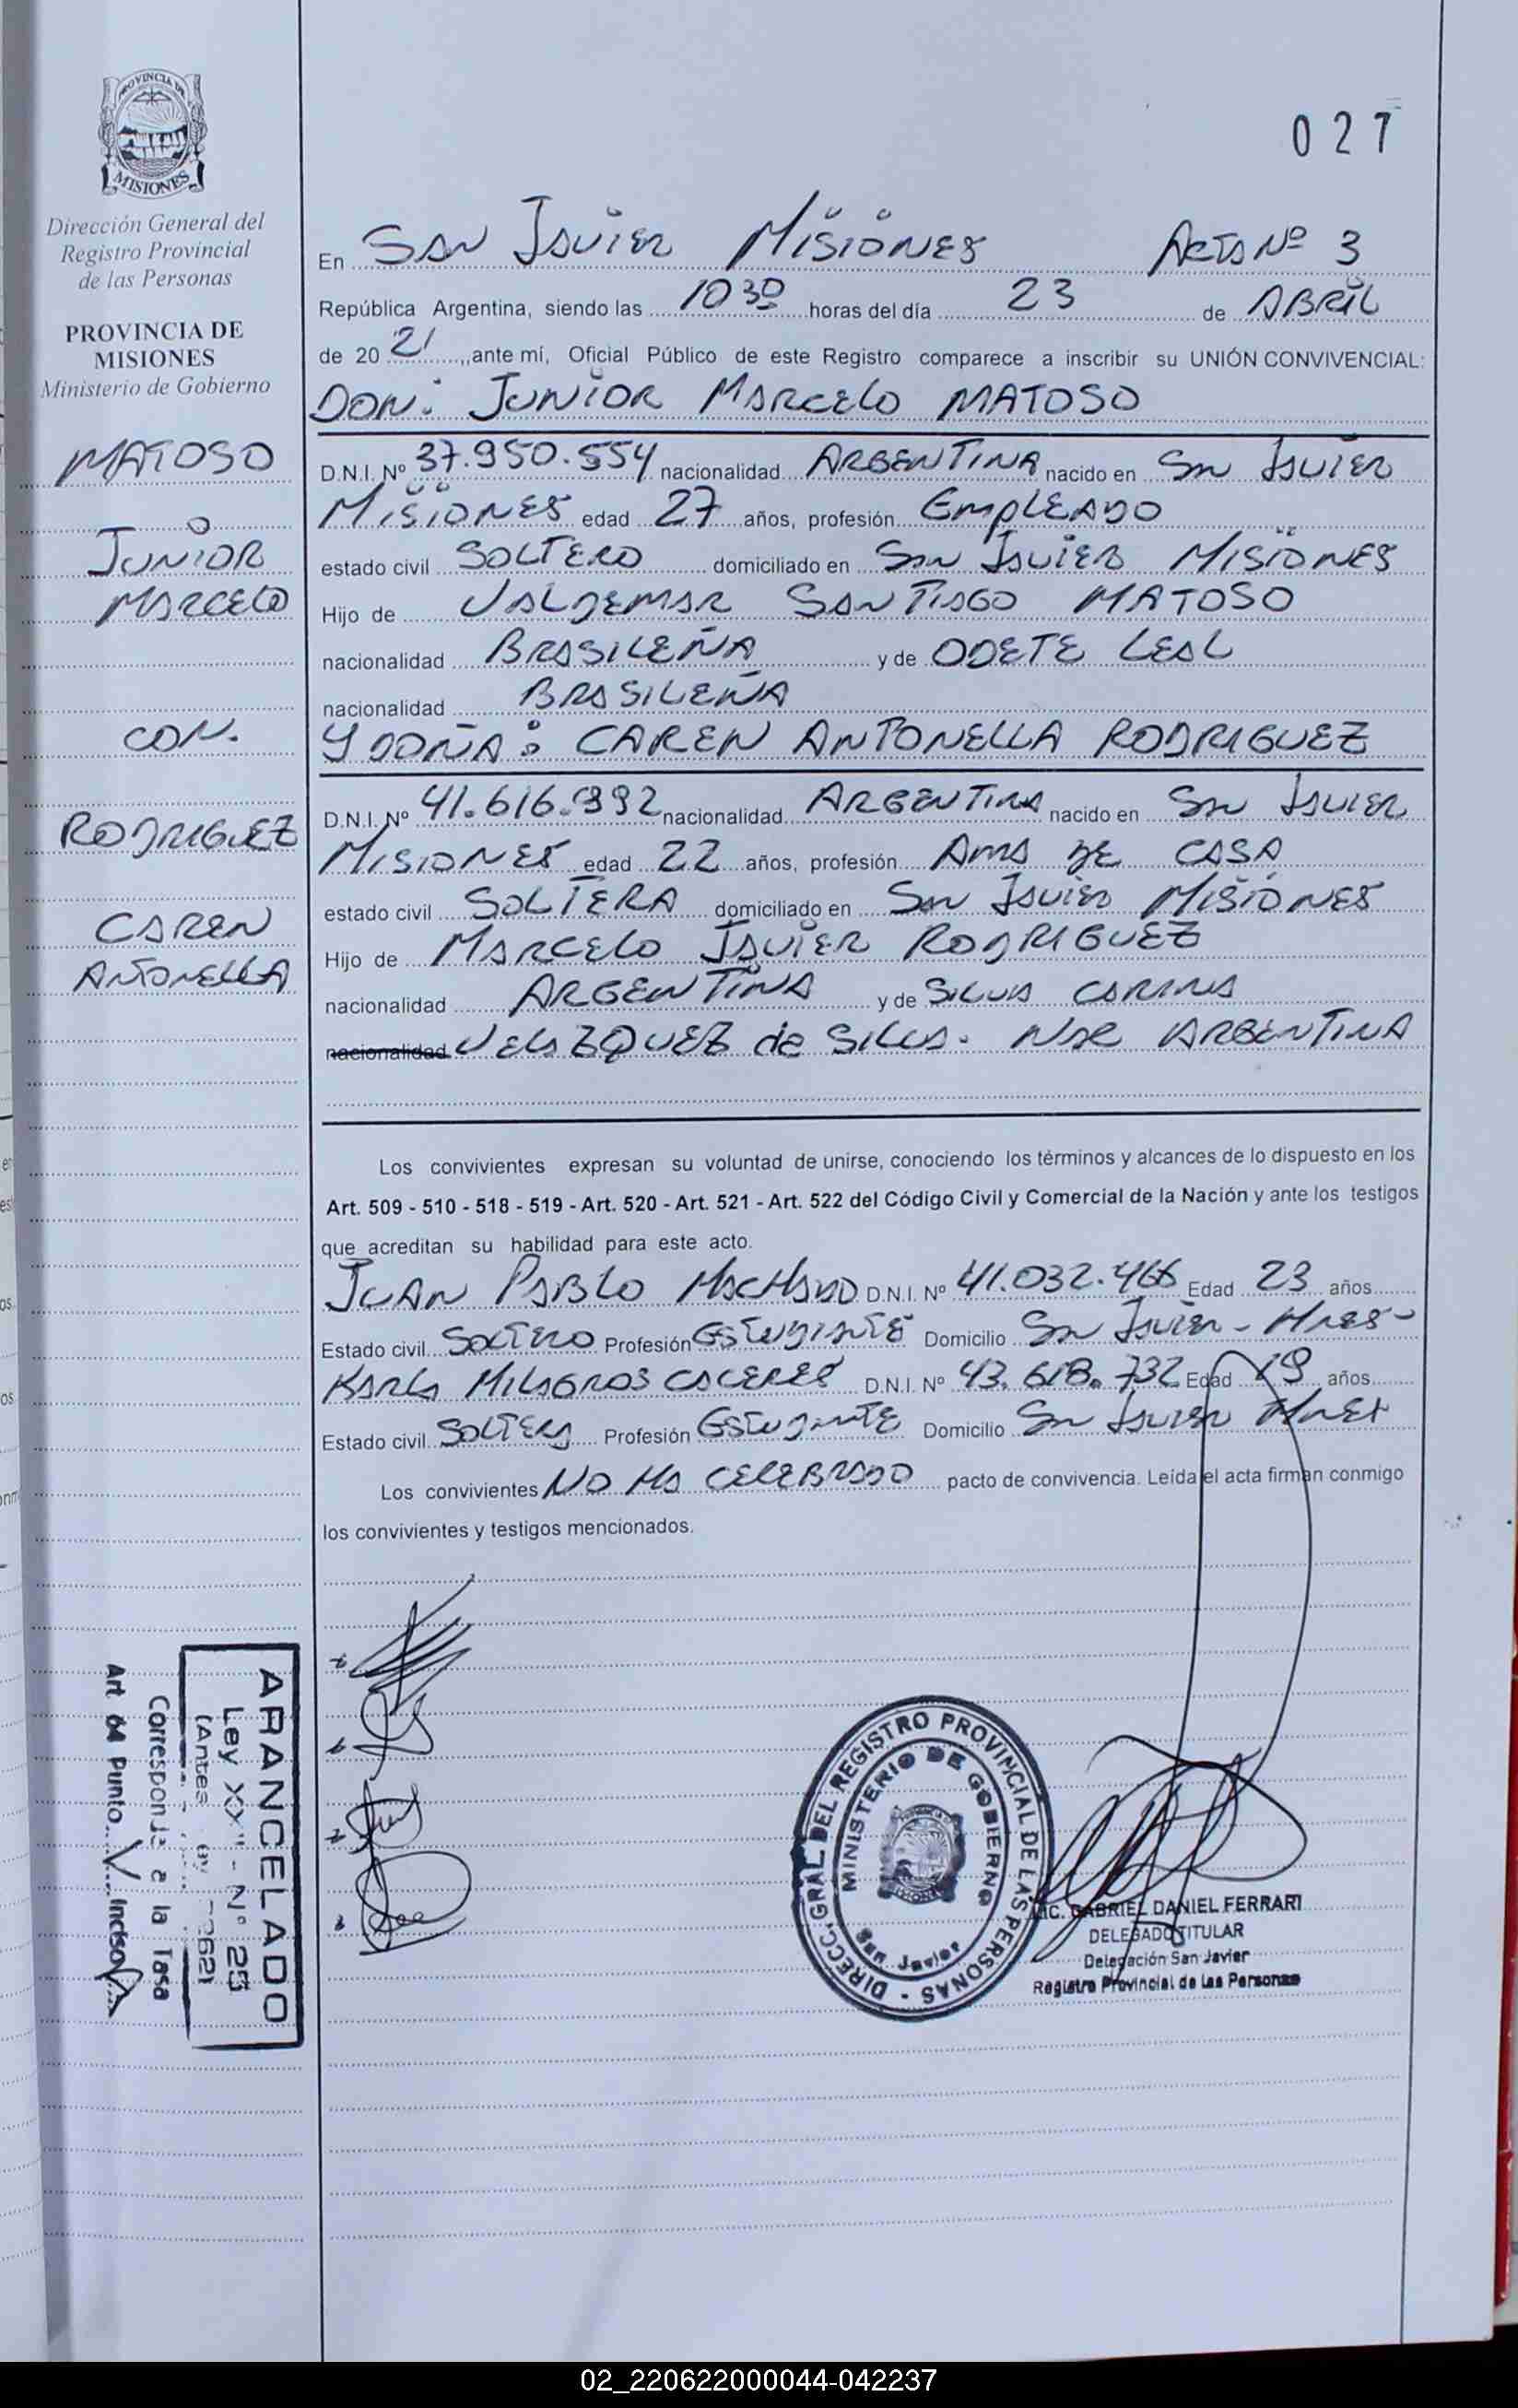 PROVINCIA DE
MISIONES
Dirección General del
Registro Provincial
de las Personas
PROVINCIA DE
MISIONES
Ministerio de Gobierno
MATOSO
JUNIOR
MARCELO
CON.
RODRIGUEZ
CAREN
ANTONELLA
027
En SAN JAVIER MISIONES ACTA Nº 3
República Argentina, siendo las 10 30 horas del día 23 de ABRIL
de 20 21 ,,ante mí, Oficial Público de este Registro comparece a inscribir su UNIÓN CONVIVENCIAL:
DON: JUNIOR MARCELO MATOSO
D.N.I. Nº 37.950.554 nacionalidad ARGENTINA nacido en SAN JAVIER
MISIONES edad 27 años, profesión EMPLEADO
estado civil SOLTERO domiciliado en SAN JAVIER MISIONES
Hijo de VALDEMAR SANTIAGO MATOSO
nacionalidad BRASILEÑA y de ODETE LEAL
nacionalidad BRASILEÑA
Y DOÑA: CAREN ANTONELLA RODRIGUEZ
D.N.I. Nº 41.616.992 nacionalidad ARGENTINA nacido en SAN JAVIER
MISIONES edad 22 años, profesión AMA DE CASA
estado civil SOLTERA domiciliado en SAN JAVIER MISIONES
Hijo de MARCELO JAVIER RODRIGUEZ
nacionalidad ARGENTINA y de SILVIA CARINA
nacionalidad VELAZQUEZ de SILVA. NAC ARGENTINA
Los convivientes expresan su voluntad de unirse, conociendo los términos y alcances de lo dispuesto en los
Art. 509 - 510 - 518 - 519 - Art. 520 - Art. 521 - Art. 522 del Código Civil y Comercial de la Nación y ante los testigos
que acreditan su habilidad para este acto.
JUAN PABLO MACHADO D.N.I. Nº 41.032.466 Edad 23 años
Estado civil SOLTERO Profesión ESTUDIANTE Domicilio SAN JAVIER - MNES-
KARLA MILAGROS CACERES D.N.I. Nº 43.618.732 Edad 19 años
Estado civil SOLTERA Profesión ESTUDIANTE Domicilio SAN JAVIER MNES
Los convivientes NO HA CELEBRADO pacto de convivencia. Leída el acta firman conmigo
los convivientes y testigos mencionados.
ARANCELADO
Ley XXII - Nº 25
(Antes
Corresponde a la Tasa
Art 64 Punto V Inciso A
DIRECC. GRAL DEL REGISTRO PROVINCIAL DE LAS PERSONAS -
MINISTERIO DE GOBIERNO
San Javier
LIC. GABRIEL DANIEL FERRARI
DELEGADO TITULAR
Delegación San Javier
Registro Provincial de las Personas
02_220622000044-042237